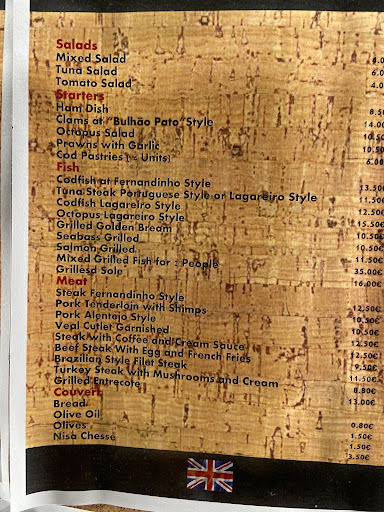 Salads
Mixed Salad
Tuna Salad 6.0
Tomato Salad 4.0
Starters
Ham Dish 8.5
Clams at "Bulhão Pato" Style 14.00
Octopus Salad 10.50
Prawns with Garlic 10.50
Cod Pastries ( Units) 6.00
Fish
Codfish at Fernandinho Style 13.50
Tuna Steak Portuguese Style or Lagareiro Style 11.50€
Codfish Lagareiro Style 12.50€
Octopus Lagareiro Style 15.50€
Grilled Golden Bream 10.50€
Seabass Grilled 10.50€
Salmon Grilled 11.50€
Mixed Grilled Fish for : People 35.00€
Grillesd Sole 16.00€
Meat
Steak Fernandinho Style 12.50€
Pork Tenderloin with Shimps 10.50€
Pork Alentejo Style 10.50€
Veal Cutlet Garnished 12.50€
Steak with Coffee and Cream Sauce 12.50€
Beef Steak With Egg and French Fries 9.50€
Brazilian Style Filet Steak 11.50€
Turkey Steak with Mushrooms and Cream 8.80€
Grilled Entrecote 13.00€
Couvert
Bread 0.80€
Olive Oil 1.50€
Olives 1.50€
Nisa Chesse 3.50€